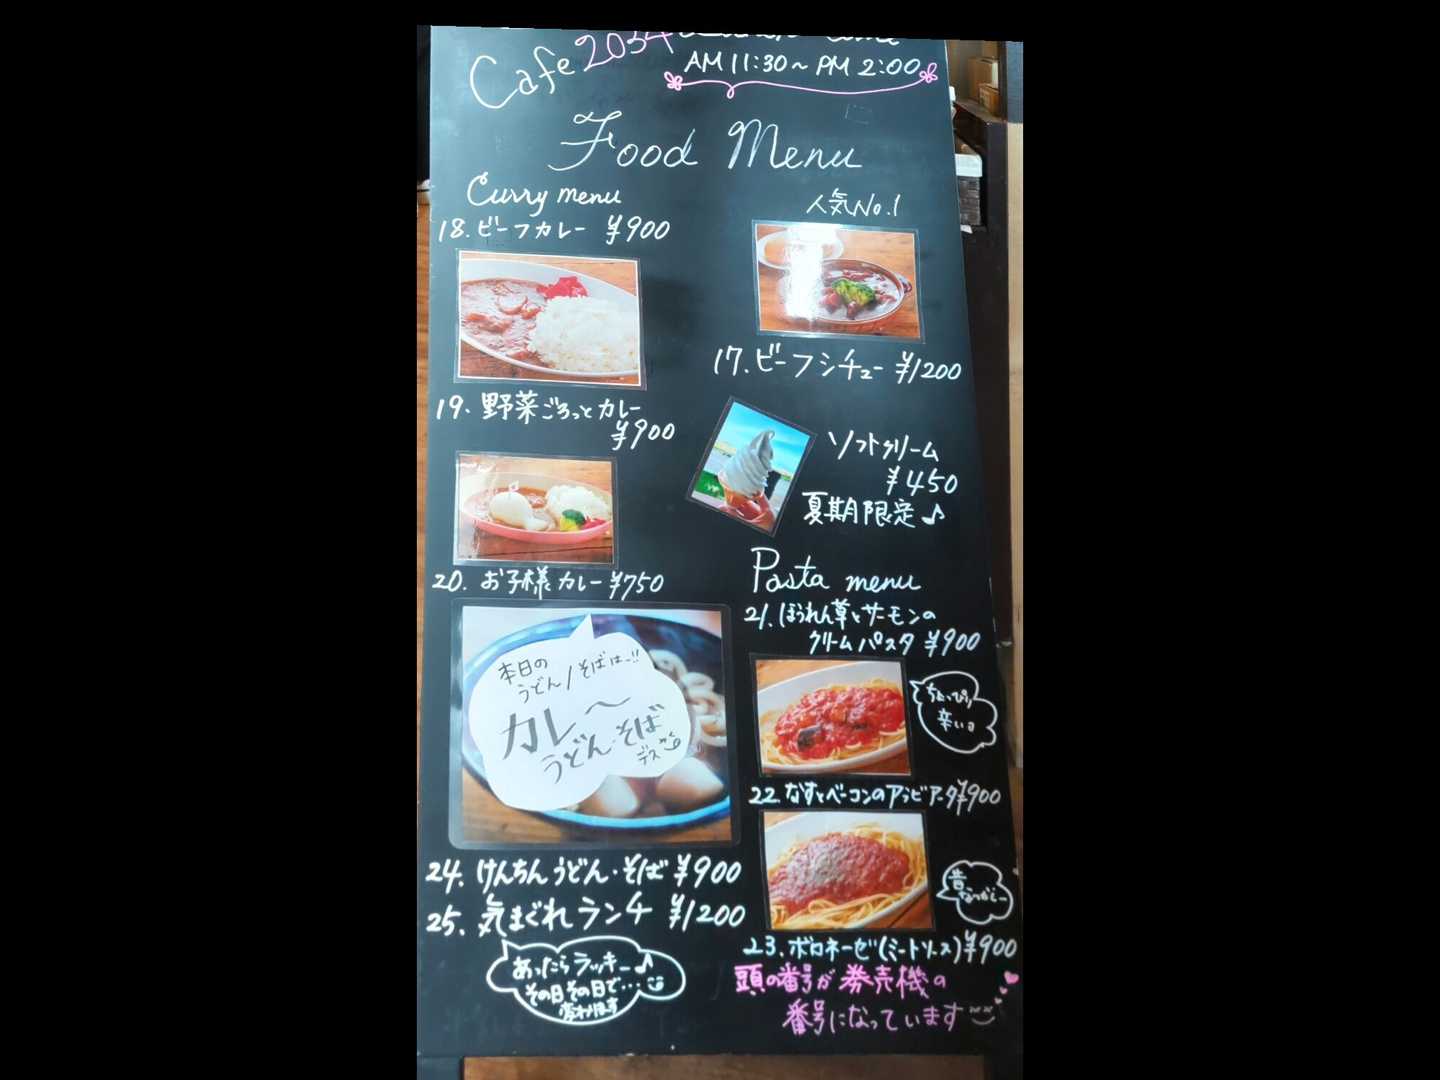 Cafe 2034 Lunch time
AM 11:30~PM 2:00
Food Menu
Curry menu
18.ビーフカレー ¥900
19.野菜ごろっとカレー
¥900
20.お子様カレー¥750
本日の
うどん/そばはー!!
カレ〜
うどん・そば
デス
24.けんちんうどん・そば ¥900
25.気まぐれランチ ¥1200
あったらラッキー♪
その日その日で…
変わります
人気No.1
17.ビーフシチュー ¥1200
ソフトクリーム
¥450
夏期限定♪
Pasta menu
21.ほうれん草とサーモンの
クリームパスタ ¥900
ちょっぴり
辛い。
22.なすとベーコンのアラビアータ¥900
昔
なつかしー
23.ボロネーゼ(ミートソース)¥900
頭の番号が券売機の
番号になっています